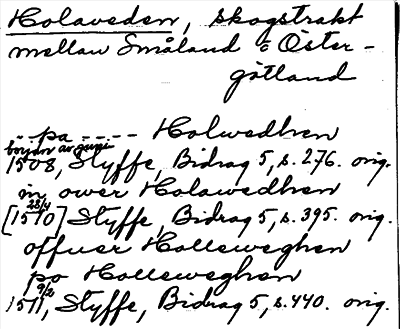 Holaveden, skogstrakt
mellan Småland o Öster-
götland
.. pa ----- Holwedhen
början av juni
1508, Styffe, Bidrag 5, s. 276. orig.
in ower Holawedhen
28/4
[1510] Styffe, Bidrag 5, s. 395. orig.
offuer Holleweghen
po Holleweghen
9/2
1511, Styffe, Bidrag 5, s. 440. orig.